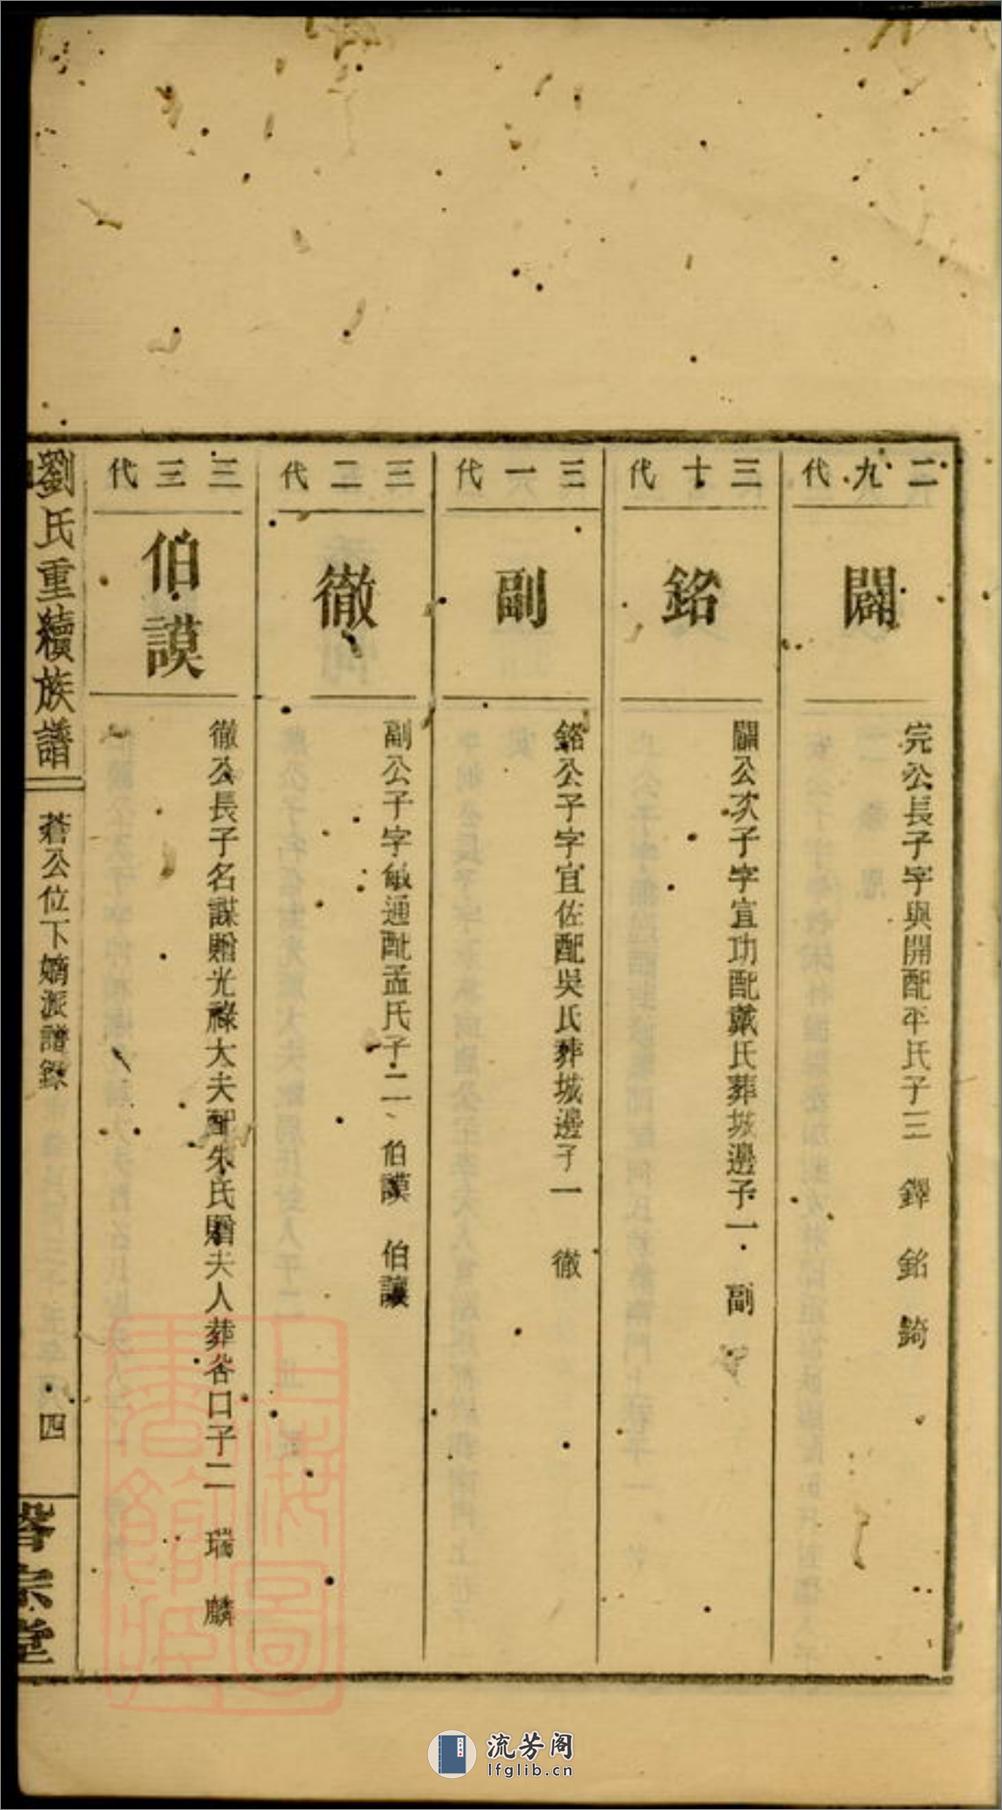 二九代
闢
完公長子字與開配平氏子三　鐸　銘　錡
三十代
銘
闢公次子字宜功配戴氏葬城邊子一　副
三一代
副
銘公子字宜佐配吳氏葬城邊子一　徹
三二代
徹
副公子字敏通配孟氏子二　伯謨　伯讓
三三代
伯謨
徹公長子名謀贈光祿大夫配朱氏贈夫人葬谷口子二　瑞　麟
劉氏重續族譜
蒼公位下嫡派譜錄
四
宗堂
上海圖書館藏
流芳阁
lfglib.cn